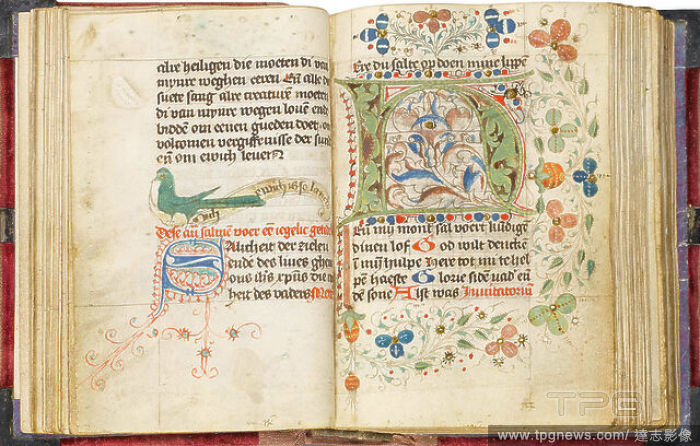 alre heiligen die moeten di van
mynre weghen eeren En alle de
suete sang alre creature moeten
di van mynre wegen loven ende
bidden om eenen gueden doet om
volcomen vergiffenisse der sund
en om ewich leven
Dese an salmen voer ee iegelic getide
Saucheit der zielen
ende des lives ghe
ous ihs xpus die
heit des vaders
Ere du salte op doen mine lippe
En my mont sal voert kundige
dinen lof God wilt dencke
in mijn hulpe Here tot mi te hel
pe haeste Glorie side vad en
de sone Alst was Invitatoriu
TPG
www.tpgnews.com / 達志影像